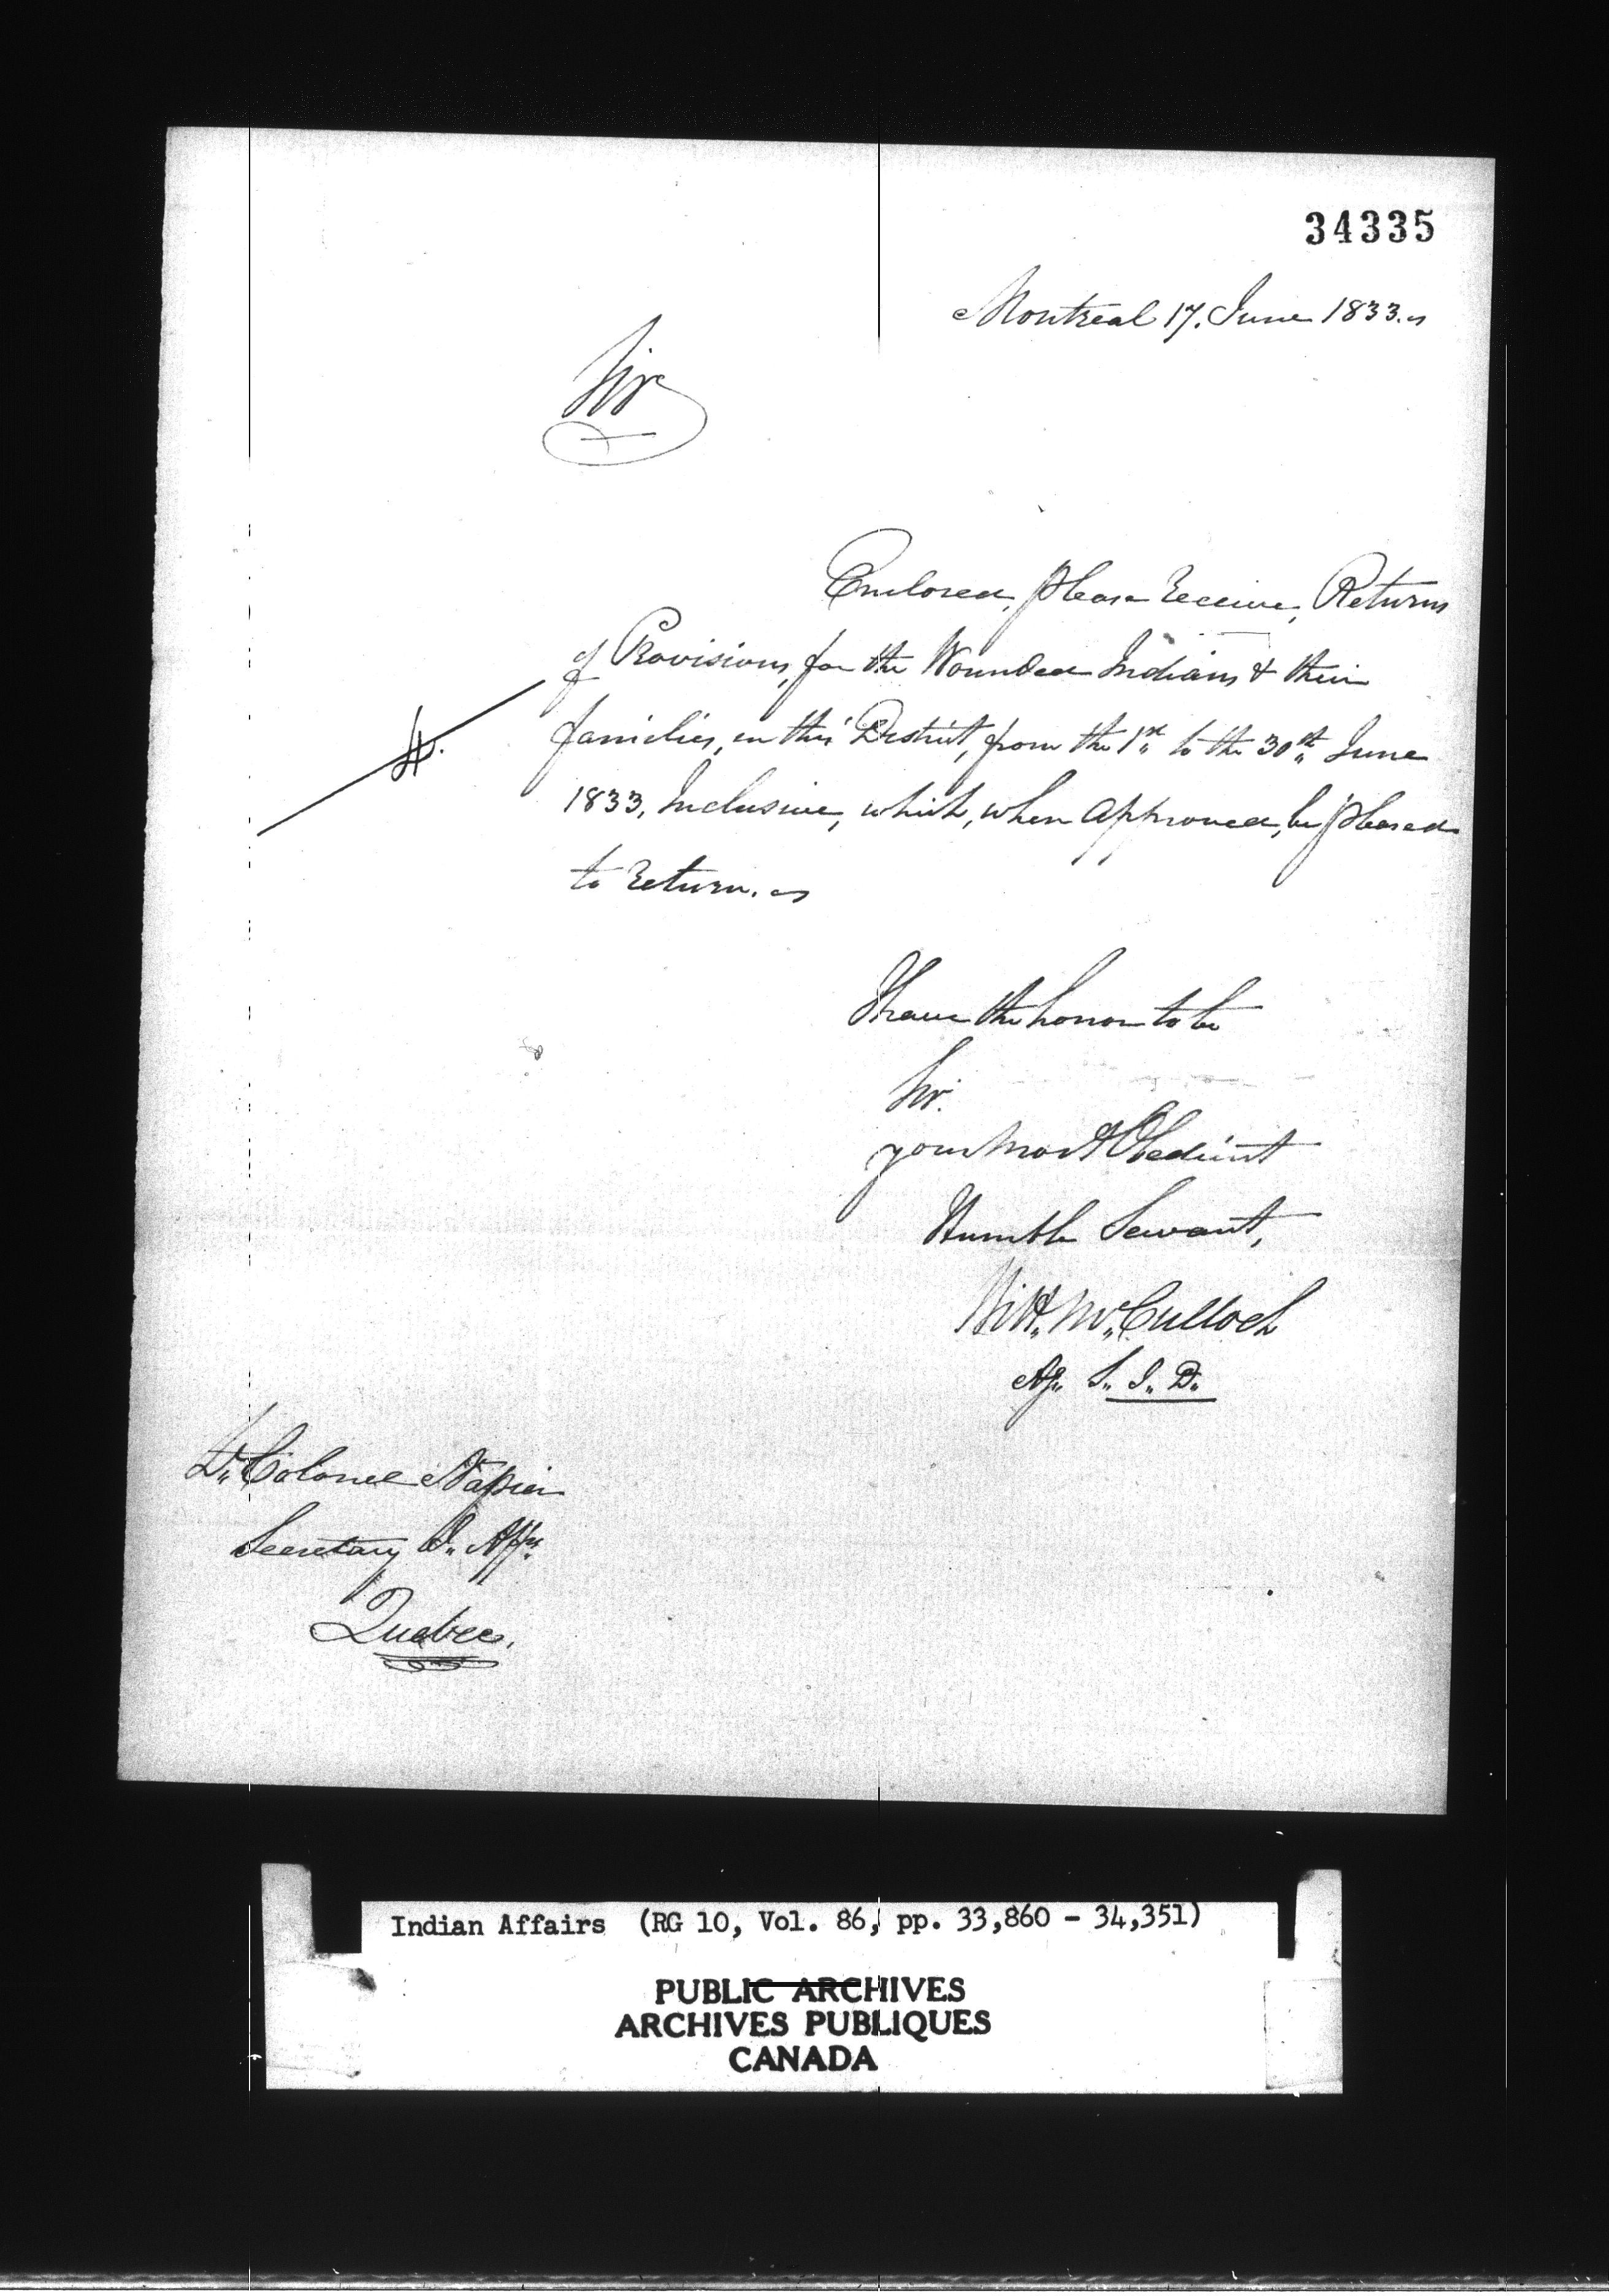 34335
Montreal 17. June 1833.
Sir
Enclosed, please Receive, Returns
of Provisions, for the Wounded Indians & their
families, in this District, from the 1st to the 30th June
1833, Inclusive, which, when approved, be pleased
to Return.
I have the honor to be
Sir.
your most Obedient
Humble Servant,
Willm. McCulloch
Ag. S. I. D.
Lt. Colonel Napier
Secretary I. Affrs.
Quebec.
Indian Affairs (RG 10, Vol. 86, pp. 33,860 - 34,351)
PUBLIC ARCHIVES
ARCHIVES PUBLIQUES
CANADA